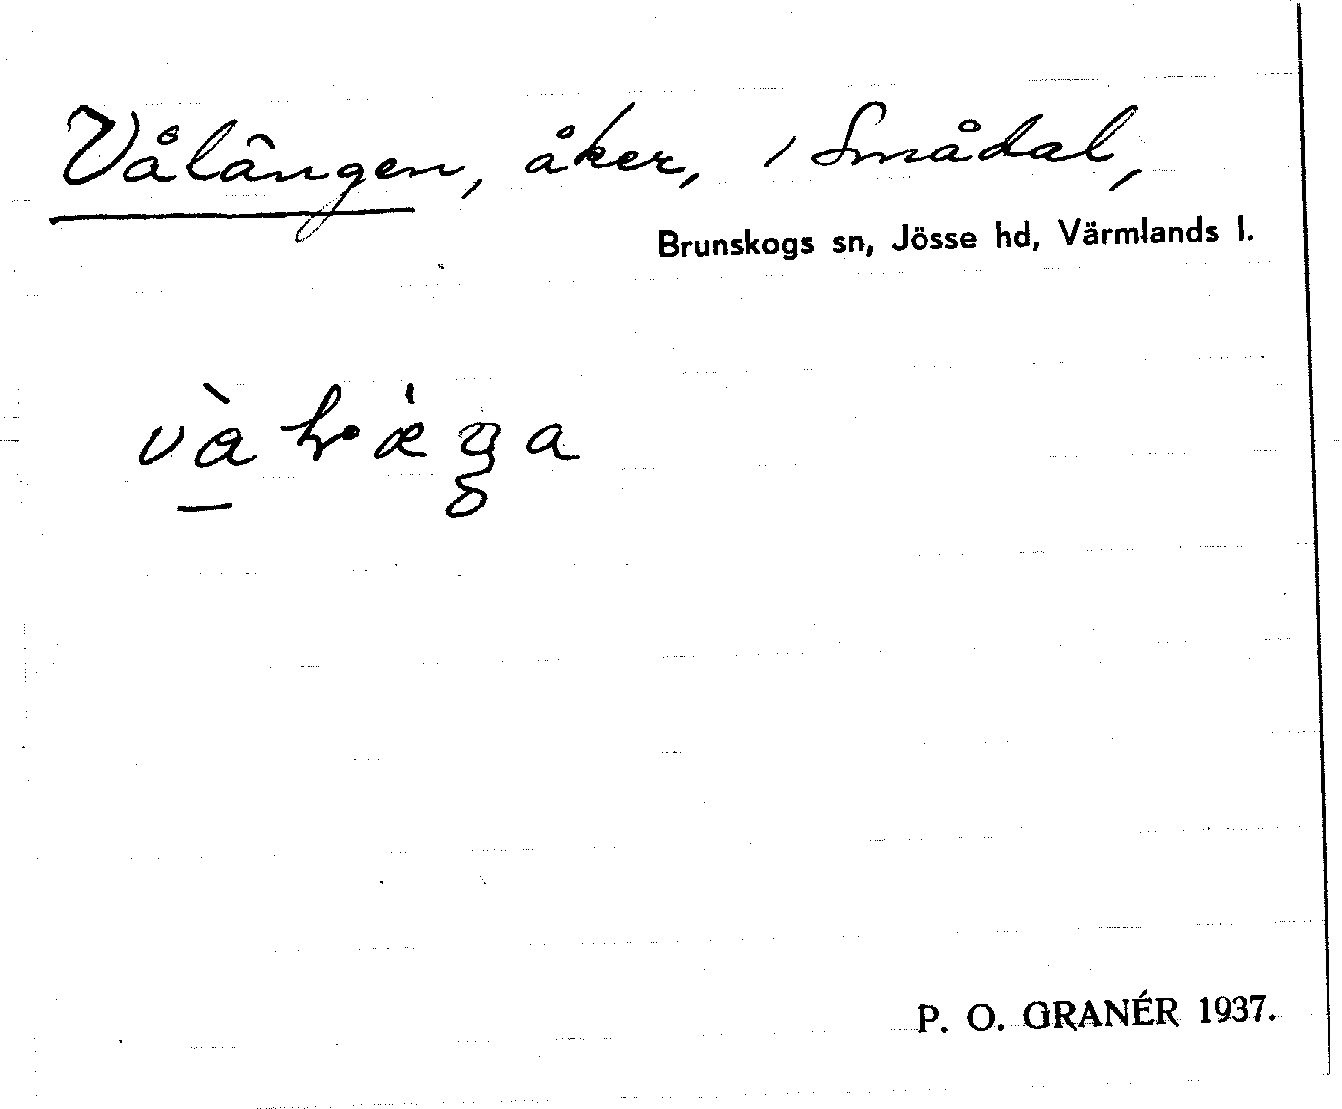 Vålängen, åker, i Smådal,
Brunskogs sn, Jösse hd, Värmlands l.
P. O. GRANÉR 1937.